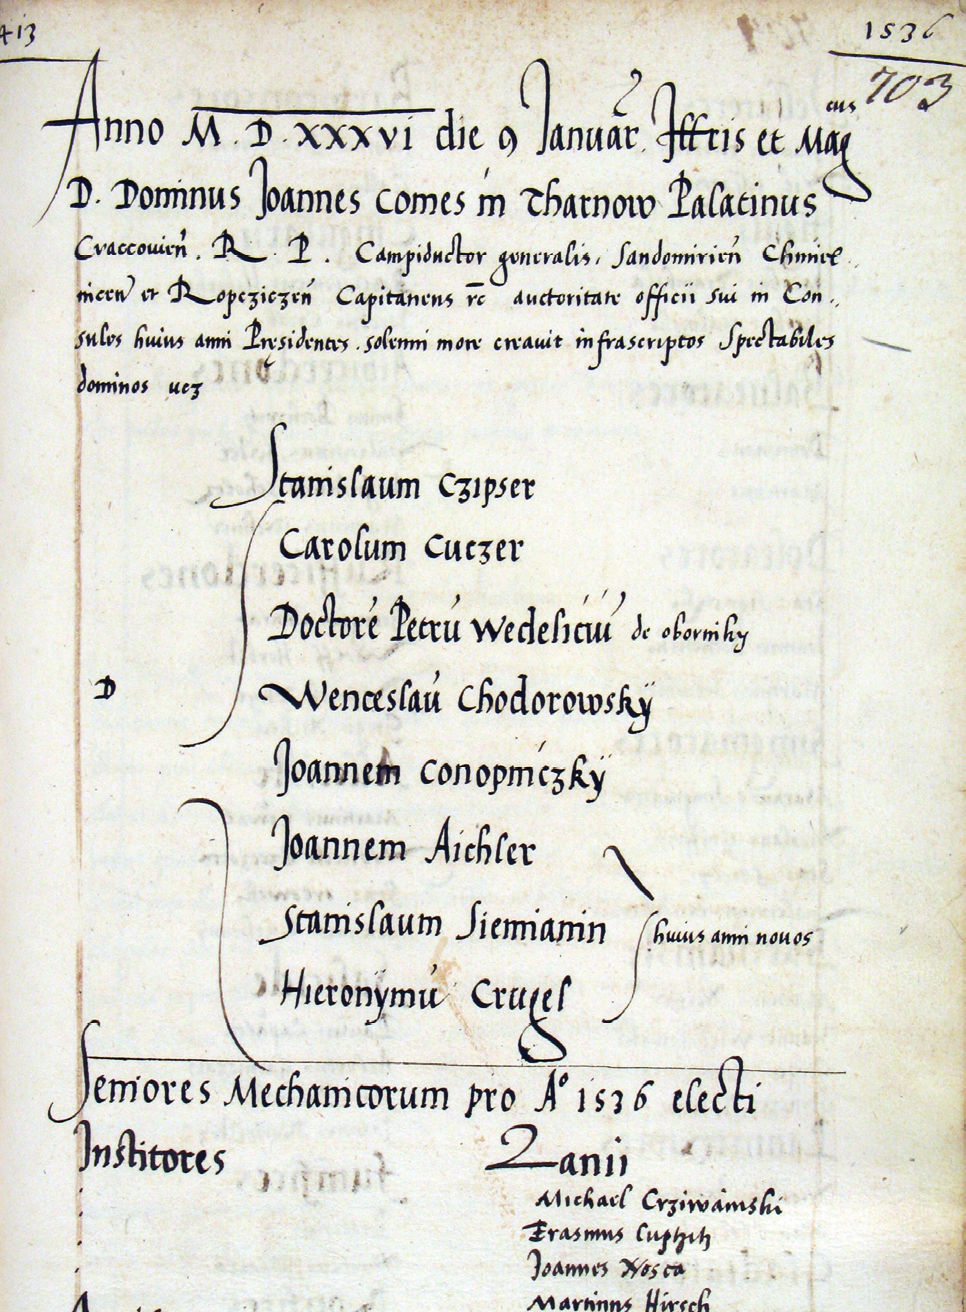 413
1536
703
Anno M. D. xxxvi die 9 Januar. Illtris et Magcus
D. Dominus Joannes Comes in Tharnow Palatinus
Craccovień. R. P. Campiductor generalis, Sandomirień Chmiel
niceń et Ropcziczeń Capitaneus rc auctoritate officii sui in Con,,
sules huius anni Presidentes solenni more creavit infrascriptos Spectabiles
dominos vcz
Stanislaum Czipser
Carolum Cuczer
Doctorē Petrū Wedeliciū de oborniky
D
Wenceslaū Chodorowskÿ
Joannem Conopniczkÿ
Joannem Aichler
Stanislaum Siemianin
huius anni novos
Hieronÿmū Crugel
Seniores Mechanicorum pro Aº 1536 electi
Institores
Lanii
Michael Crziwaniski
Erasmus
Joannes Nosca
Martinus Hirsch